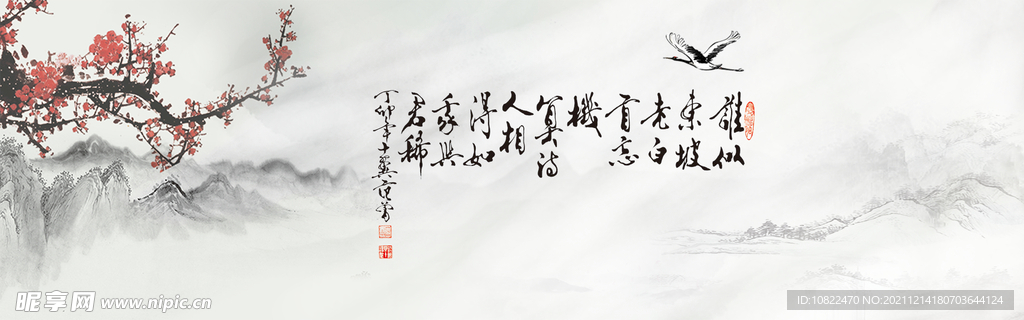 誰似
東坡
老白
首忘
機
算詩
人相
得如
我與
君稀
丁卯年十翼范曾
昵享网 www.nipic.cn
ID:10822470 NO:20211214180703644124